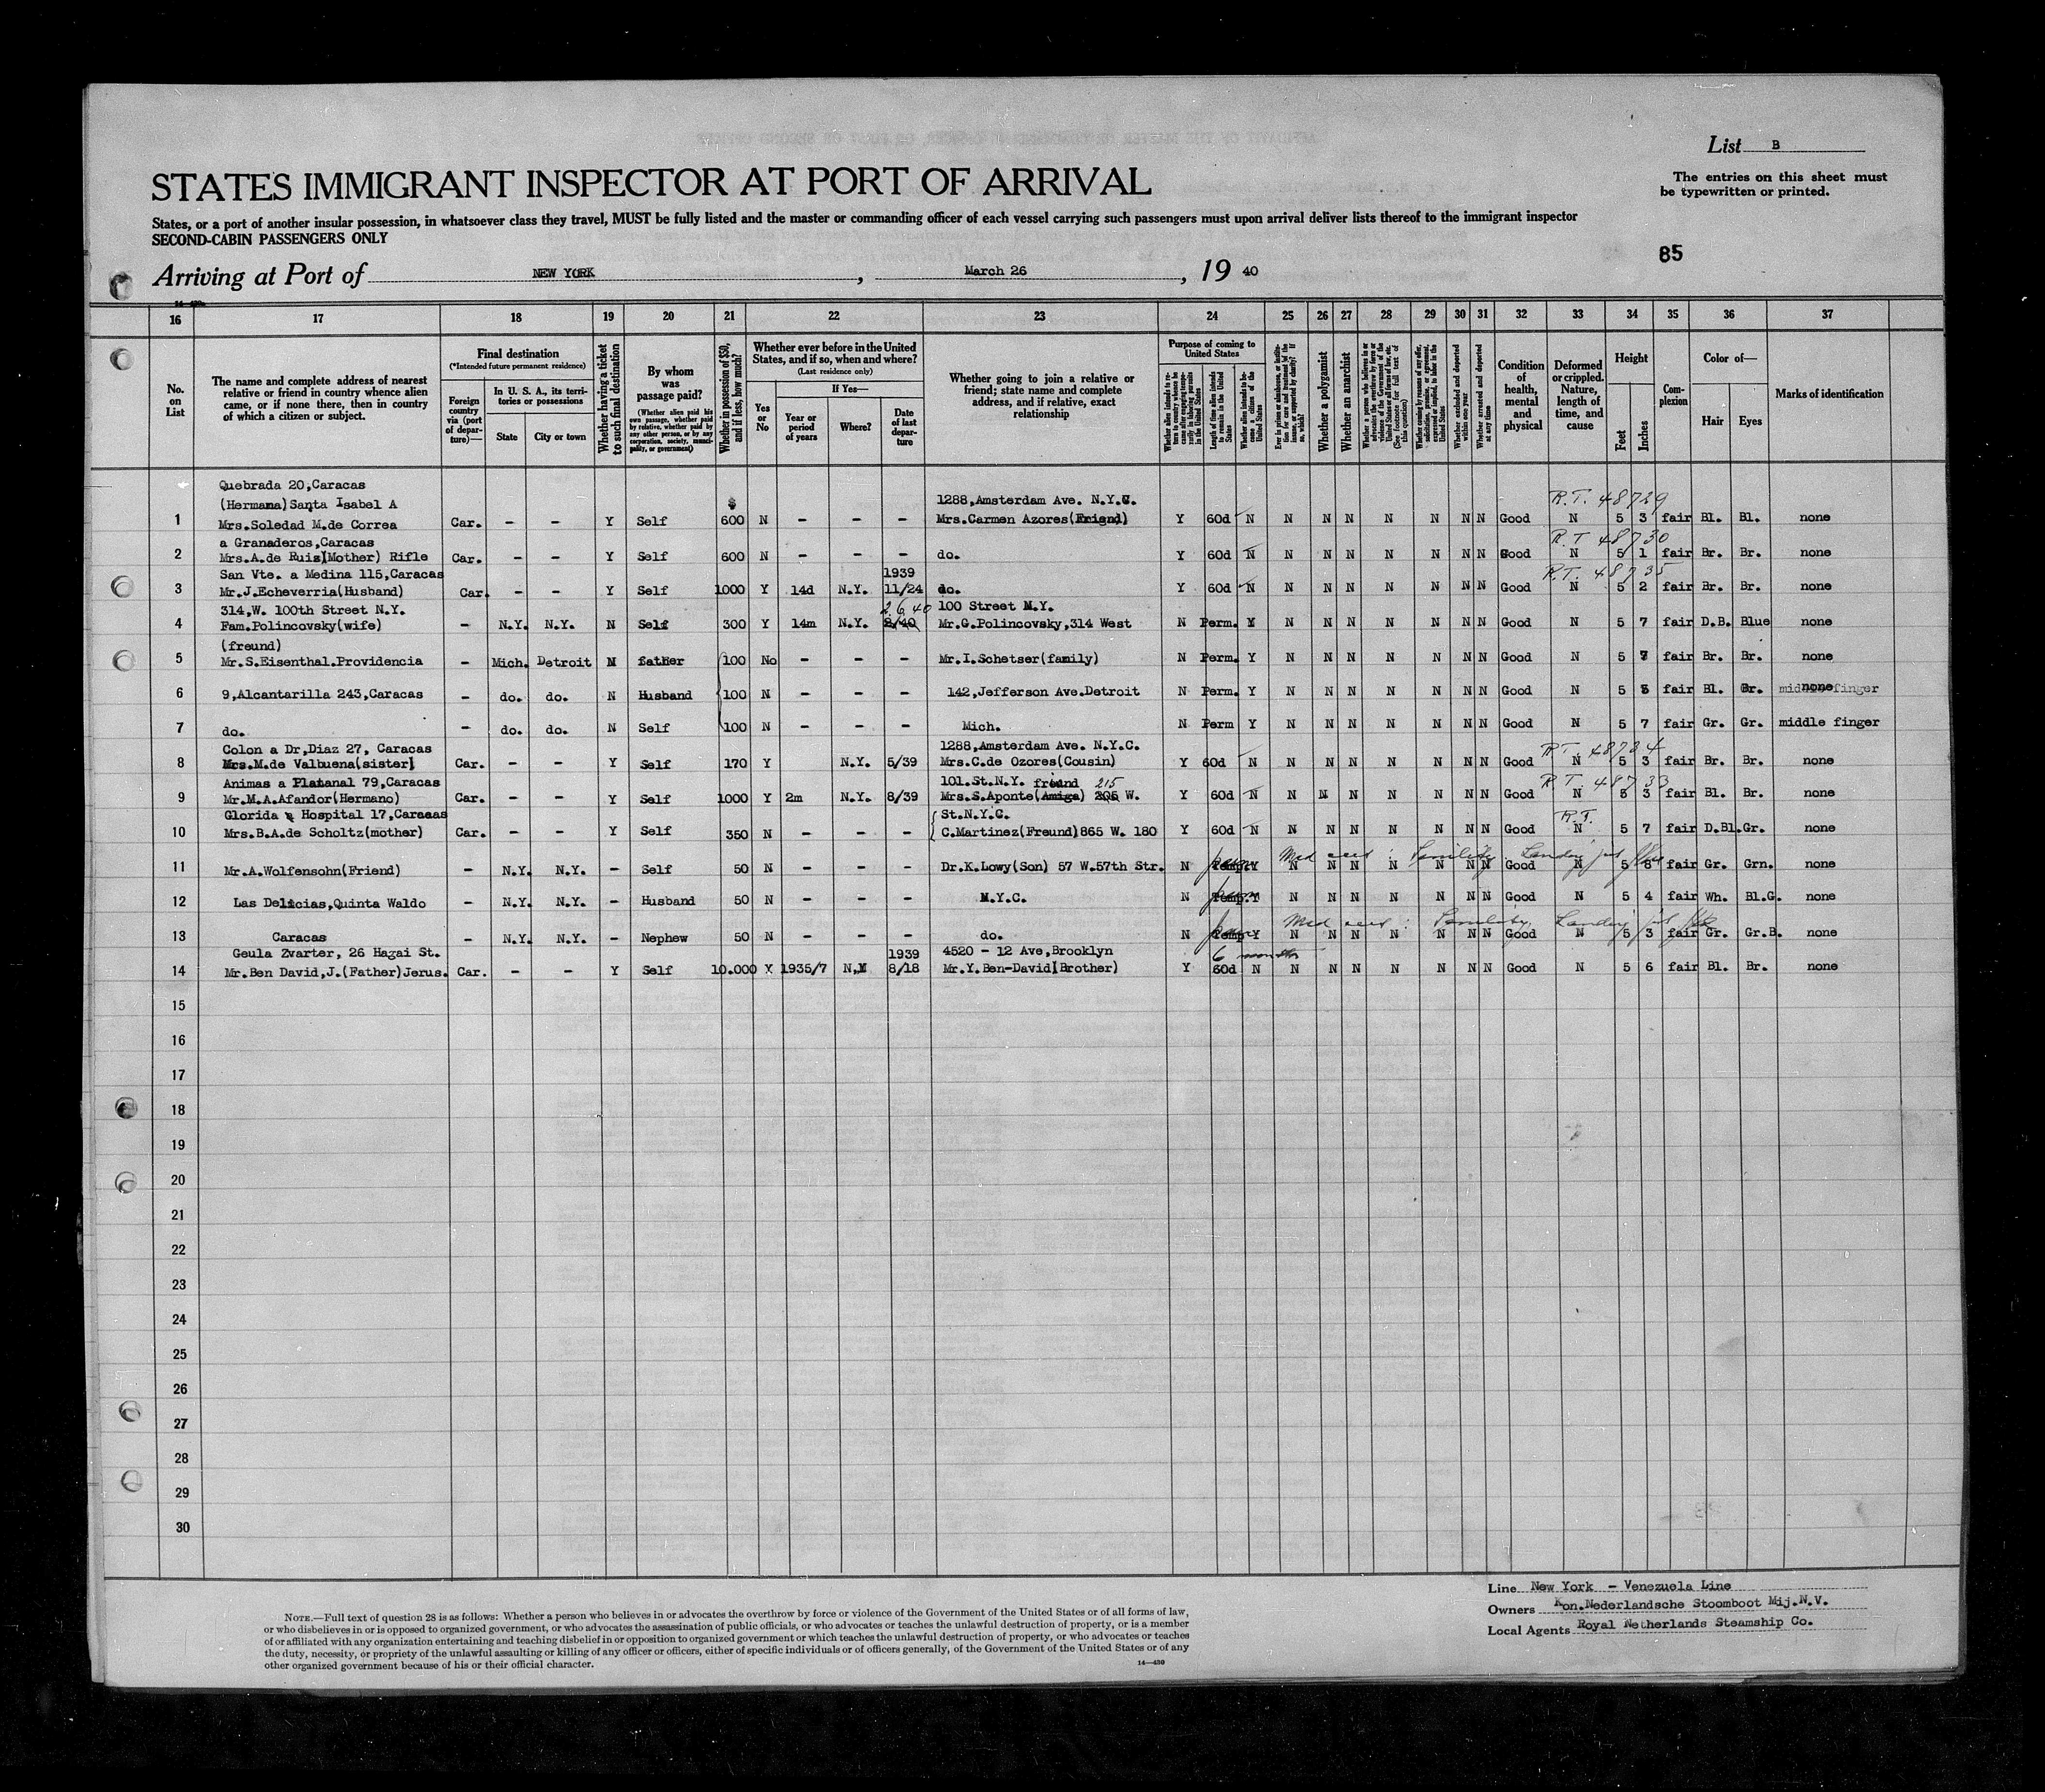 List B
STATES IMMIGRANT INSPECTOR AT PORT OF ARRIVAL
The entries on this sheet must
be typewritten or printed.
States, or a port of another insular possession, in whatsoever class they travel, MUST be fully listed and the master or commanding officer of each vessel carrying such passengers must upon arrival deliver lists thereof to the immigrant inspector
SECOND-CABIN PASSENGERS ONLY
85
Arriving at Port of NEW YORK, March 26, 19 40
16 17 18 19 20 21 22 23 24 25 26 27 28 29 30 31 32 33 34 35 36 37
No. on List
The name and complete address of nearest
relative or friend in country whence alien
came, or if none there, then in country
of which a citizen or subject.
Final destination
(*Intended future permanent residence)
Foreign country via (port of departure)—
In U. S. A., its territories or possessions
State
City or town
Whether having a ticket to such final destination
By whom was passage paid?
(Whether alien paid his own passage, whether paid by relative, whether paid by any other person, or by any corporation, society, municipality, or government)
Whether in possession of $50, and if less, how much?
Whether ever before in the United States, and if so, when and where?
(Last residence only)
Yes or No
If Yes—
Year or period of years
Where?
Date of last departure
Whether going to join a relative or
friend; state name and complete
address, and if relative, exact
relationship
Purpose of coming to United States
Length of time alien intends to remain in the United States
Whether alien intends to become a citizen of the United States
Whether a polygamist
Whether an anarchist
Whether excluded and deported within one year
Whether arrested and deported at any time
Condition of health, mental and physical
Deformed or crippled. Nature, length of time, and cause
Height
Feet
Inches
Complexion
Color of—
Hair
Eyes
Marks of identification
Quebrada 20,Caracas
(Hermana)Santa Isabel A $ 1288,Amsterdam Ave. N.Y.C. R.T. 48729
1 Mrs.Soledad M.de Correa Car. - - Y Self 600 N - - - Mrs.Carmen Azores(Friend) Y 60d N N N N N N N N Good N 5 3 fair Bl. Bl. none
a Granaderos,Caracas R.T 48730
2 Mrs.A.de Ruiz(Mother) Rifle Car. - - Y Self 600 N - - - do. Y 60d N N N N N N N N Good N 5 1 fair Br. Br. none
San Vte. a Medina 115,Caracas 1939 R.T. 48735
3 Mr.J.Echeverria(Husband) Car. - - Y Self 1000 Y 14d N.Y. 11/24 do. Y 60d N N N N N N N N Good N 5 2 fair Br. Br. none
314,W. 100th Street N.Y. 2 6 40 100 Street N.Y.
4 Fam.Polincovsky(wife) - N.Y. N.Y. N Self 300 Y 14m N.Y. 8/40 Mr.G.Polincovsky,314 West N Perm. Y N N N N N N N Good N 5 7 fair D.B. Blue none
(freund)
5 Mr.S.Eisenthal.Providencia - Mich. Detroit N father 100 No - - - Mr.I.Schetser(family) N Perm. Y N N N N N N N Good N 5 7 fair Br. Br. none
6 9,Alcantarilla 243,Caracas - do. do. N Husband 100 N - - - 142,Jefferson Ave.Detroit N Perm. Y N N N N N N N Good N 5 fair Bl. Gr. none
7 do. - do. do. N Self 100 N - - - Mich. N Perm Y N N N N N N N Good N 5 7 fair Gr. Gr. middle finger
Colon a Dr,Diaz 27, Caracas 1288,Amsterdam Ave. N.Y.C. R.T. 48734
8 Mrs.M.de Valbuena(sister) Car. - - Y Self 170 Y N.Y. 5/39 Mrs.C.de Ozores(Cousin) Y 60d N N N N N N N N Good N 5 3 fair Br. Br. none
Animas a Platanal 79,Caracas 101.St.N.Y. friend 215 R.T 48733
9 Mr.M.A.Afandor(Hermano) Car. - - Y Self 1000 Y 2m N.Y. 8/39 Mrs.S.Aponte(Amiga) 205 W. Y 60d N N N N N N N N Good N 5 3 fair Bl. Br. none
Glorida a Hospital 17,Caracas St.N.Y.C. R.T.
10 Mrs.B.A.de Scholtz(mother) Car. - - Y Self 350 N - - - C.Martinez(Freund)865 W. 180 Y 60d N N N N N N N N Good N 5 7 fair D.Bl. Gr. none
perm Med cert: Senility
11 Mr.A.Wolfensohn(Friend) - N.Y. N.Y. - Self 50 N - - - Dr.K.Lowy(Son) 57 W.57th Str. N Temp. Y N N N N N N N Good N 5 8 fair Gr. Grn. none
12 Las Delicias,Quinta Waldo - N.Y. N.Y. - Husband 50 N - - - N.Y.C. N perm Temp. Y N N N N N N N Good N 5 4 fair Wh. Bl.G. none
perm Med cert: Senility
13 Caracas - N.Y. N.Y. - Nephew 50 N - - - do. N Temp. Y N N N N N N N Good N 5 3 fair Gr. Gr.B. none
Geula Zvarter, 26 Hagai St. 1939 4520 - 12 Ave,Brooklyn 6 months
14 Mr.Ben David,J.(Father)Jerus. Car. - - Y Self 10.000 Y 1935/7 N.Y 8/18 Mr.Y.Ben-David(Brother) Y 60d N N N N N N N N Good N 5 6 fair Bl. Br. none
15
16
17
18
19
20
21
22
23
24
25
26
27
28
29
30
Line New York - Venezuela Line
Owners Kon.Nederlandsche Stoomboot Mij.N.V.
Local Agents Royal Netherlands Steamship Co.
NOTE.—Full text of question 28 is as follows: Whether a person who believes in or advocates the overthrow by force or violence of the Government of the United States or of all forms of law,
or who disbelieves in or is opposed to organized government, or who advocates the assassination of public officials, or who advocates or teaches the unlawful destruction of property, or is a member
of or affiliated with any organization entertaining and teaching disbelief in or opposition to organized government or which teaches the unlawful destruction of property, or who advocates or teaches
the duty, necessity, or propriety of the unlawful assaulting or killing of any officer or officers, either of specific individuals or of officers generally, of the Government of the United States or of any
other organized government because of his or their official character.
14—430